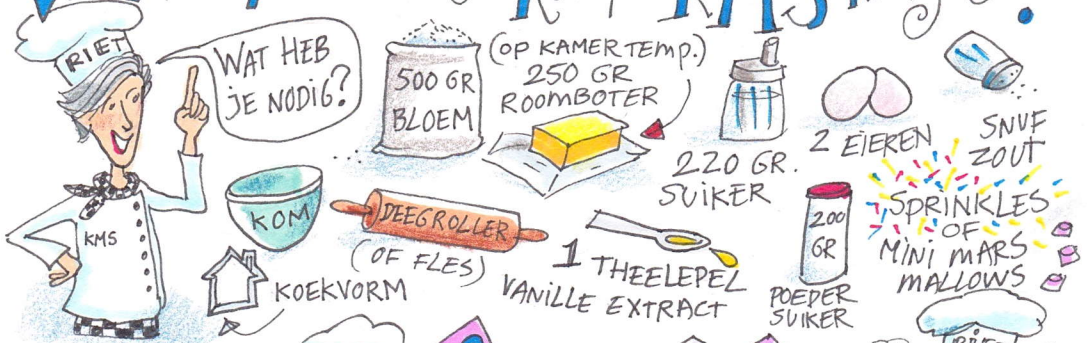 RIET
WAT HEB
JE NODIG?
500 GR
BLOEM
(OP KAMERTEMP.)
250 GR
ROOMBOTER
220 GR.
SUIKER
2 EIEREN
SNUF
ZOUT
KMS
KOM
KOEKVORM
DEEGROLLER
(OF FLES)
1 THEELEPEL
VANILLE EXTRACT
200
GR
POEDER
SUIKER
SPRINKLES
OF
MINI MARS
MALLOWS